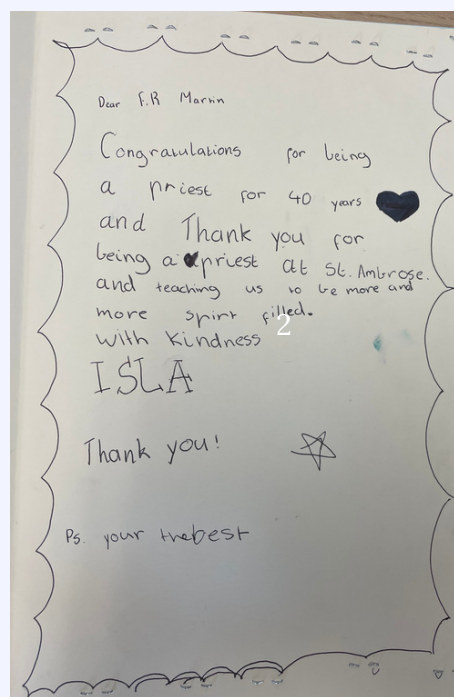 Dear F.R Martin
Congratulations for being
a priest for 40 years
and Thank you for
being a priest at St. Ambrose.
and teaching us to be more and
more spirt filled.
2
with kindness
ISLA
Thank you!
Ps. your the best